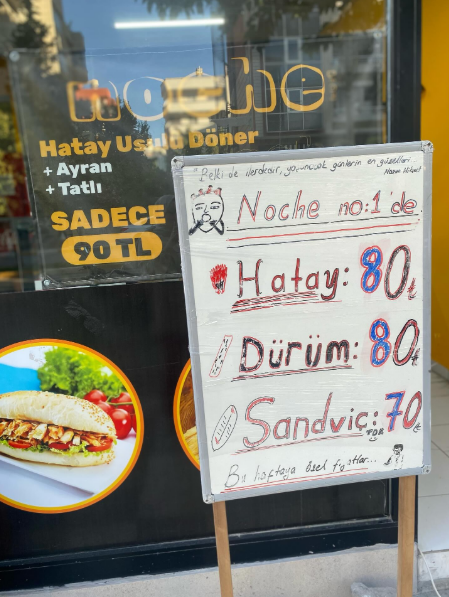 noche
Hatay Usulü Döner
+ Ayran
+ Tatlı
SADECE
90 TL
"Belki de ilerdedir, yaşanacak günlerin en güzelleri
Nazım Hikmet
Noche no:1'de
Hatay: 80t
Dürüm: 80t
Sandviç: 70t
Bu haftaya özel fiyatlar...